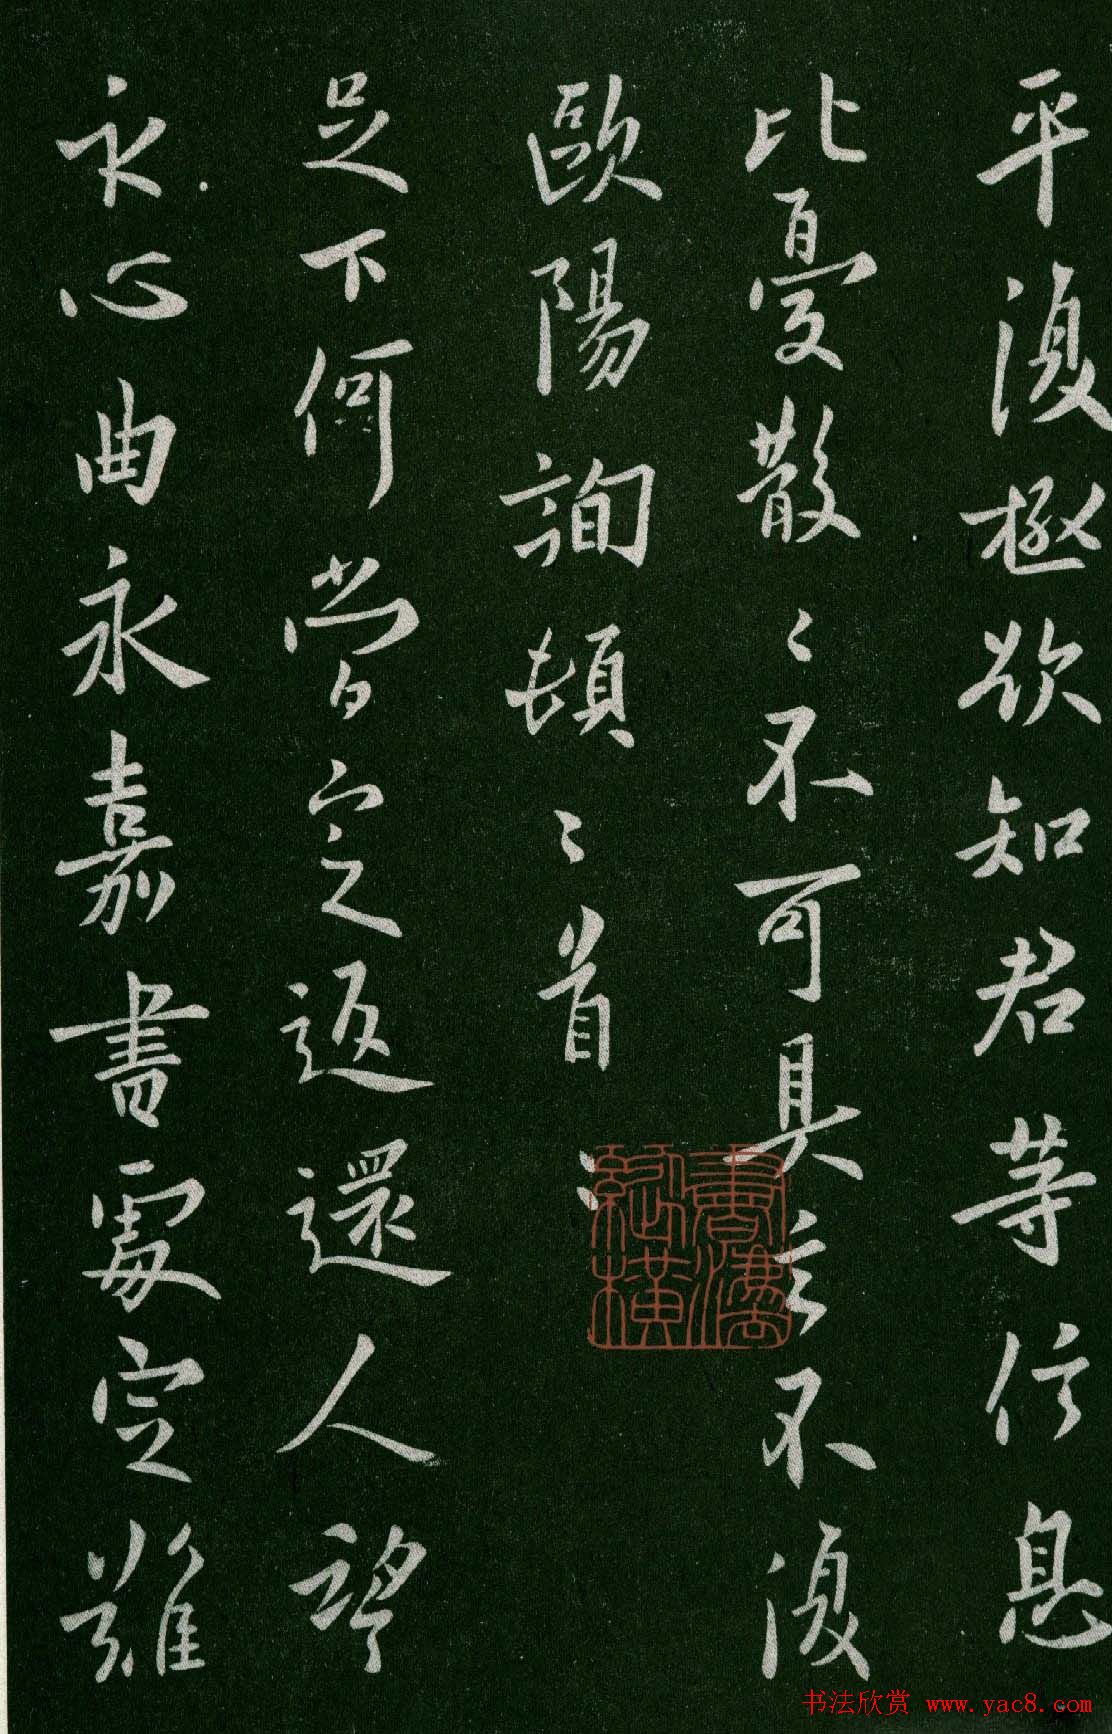 平復極欲知君等信息
比憂散〻不可具云不復
歐陽詢頓〻首〻
足下何當定返還人望
示心曲永嘉書處定難
書灋縱橫
书法欣赏 www.yac8.com